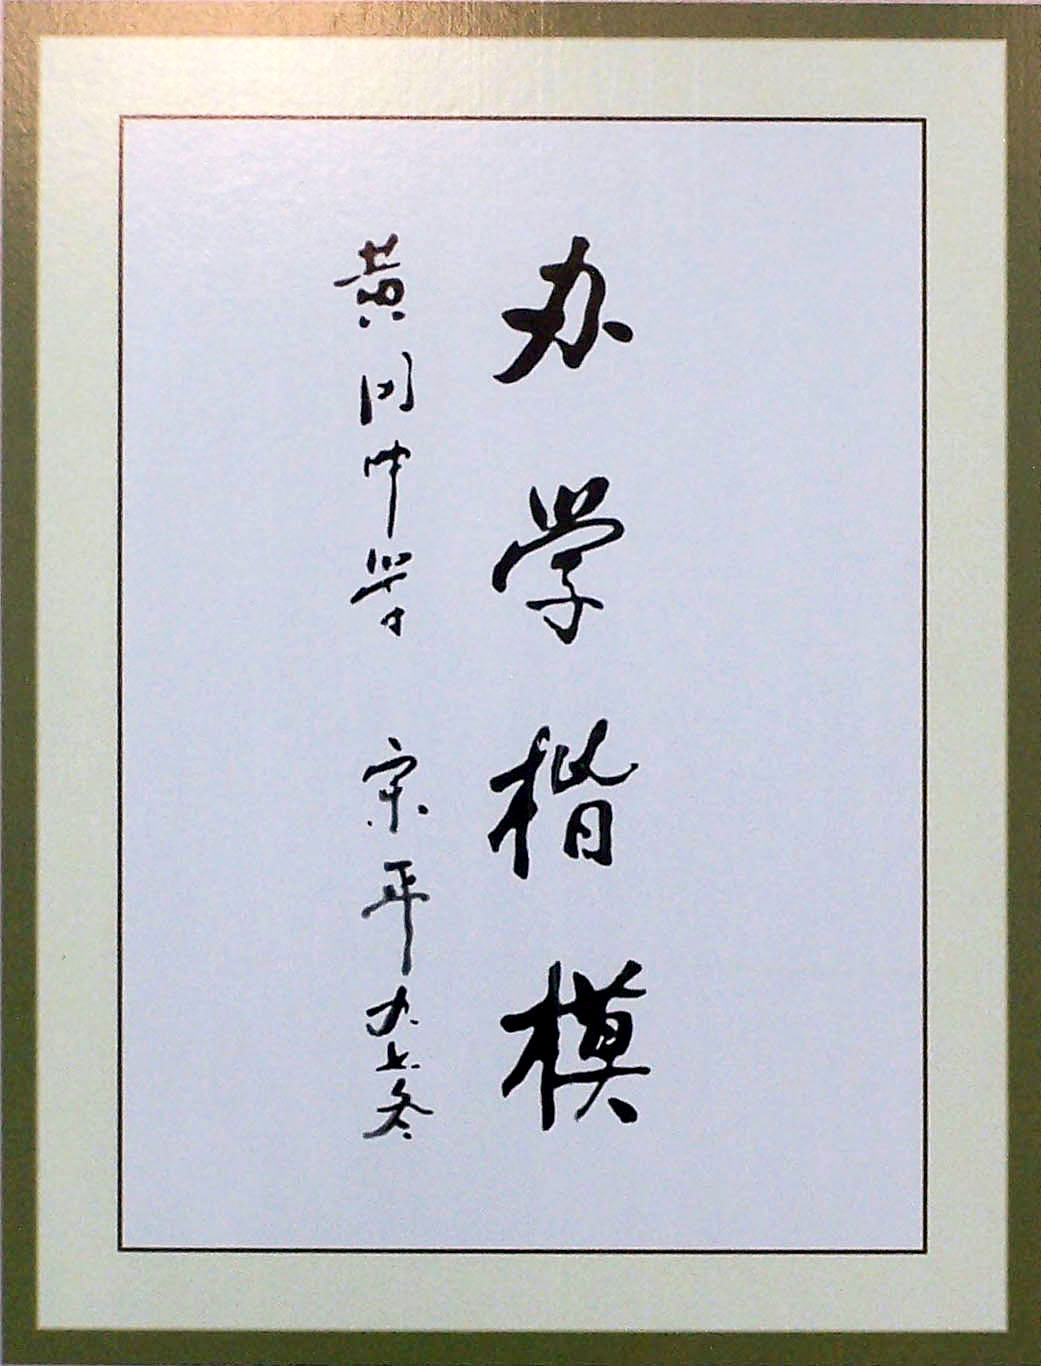 办学楷模
黄冈中学 宋平 九七冬